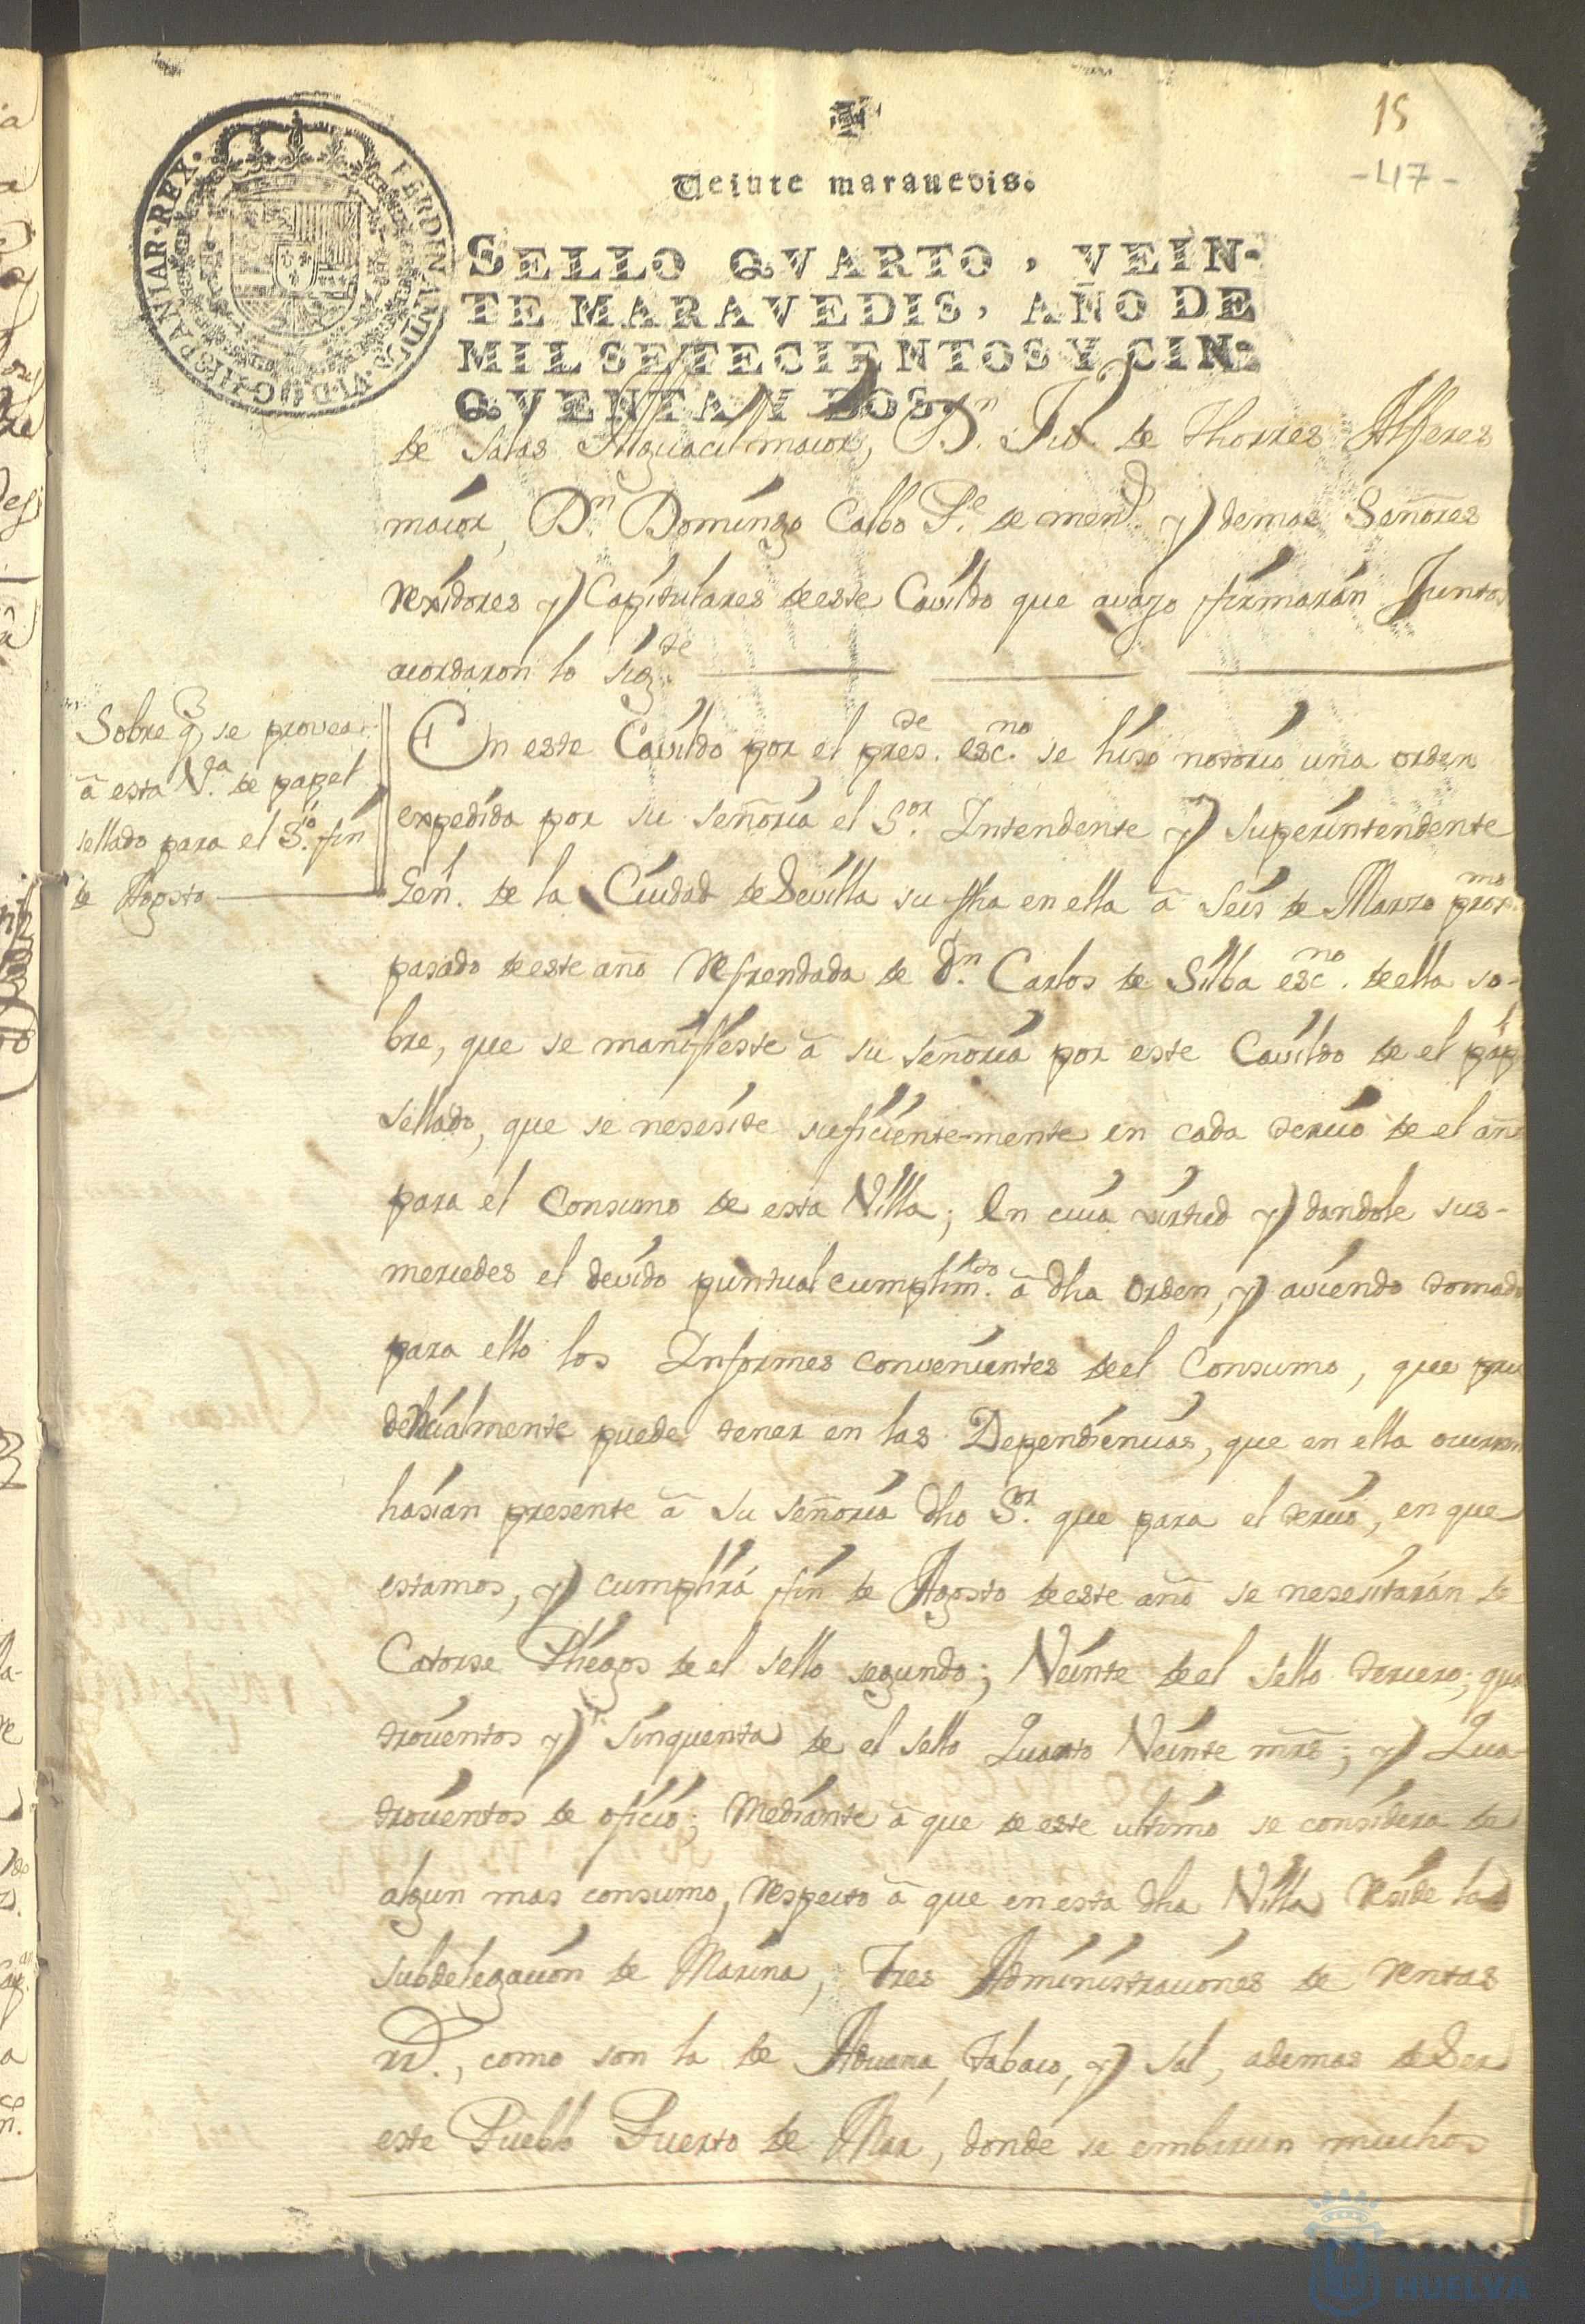 15
-47-
FERDINANDUS·VI·D·G·HISPANIAR·REX·
Veinte marauedis.
SELLO QVARTO, VEIN-
TE MARAVEDIS, AÑO DE
MIL SETECIENTOS Y CIN-
QVENTA Y DOS.
de Salas Alguacil maior, Dn. Ju. de Thorres Alferes
maior, Dn Domingo Calbo Pe. de mend. y demas Señores
rexidores y Capitulares de este Cavildo que avajo firmarán Juntos
acordaron lo sigte
Sobre q se provea
â esta Va. de papel
sellado para el So. fin
de Agosto
En este Cavildo por el presde. escno. se hiso notorio una orden
expedida por su señoria el Sor. Intendente y superintendente
Gen. de la Ciudad de Sevilla su fha en ella â seis de Marzo proxmo.
pasado de este año refrendada de Dn. Carlos de Silba escno. de ella so-
bre, que se manifieste â su señoria por este Cavildo de el pap
sellado, que se nesesite suficientemente en cada tercio de el año
para el Consumo de esta Villa; en cuia virtud y dandole sus-
mercedes el devido puntual cumplimto. â dha orden, y aviendo tomado
para ello los Informes convenientes de el Consumo, que pru
dencialmente puede tener en las Dependencias, que en ella ocurren
hasian presente â su señoria dho Sor. que para el tercio, en que
estamos, y cumplirá fin de Agosto de este año se nesesitarán de
Catorse Pliegos de el sello segundo; Veinte de el sello tercero; qua
trocientos y sinquenta de el sello Quarto Veinte mrs; y Qua-
trocientos de oficio; mediante â que de este ultimo se considera de
algun mas consumo, respecto â que en esta dha Villa reside la
subdelegacion de Marina, Tres Administraciones de rentas
rr., como son la de Aduana, tabaco, y sal, ademas de Ser
este Pueblo Puerto de Mar, donde se embarcan muchos
HUELVA